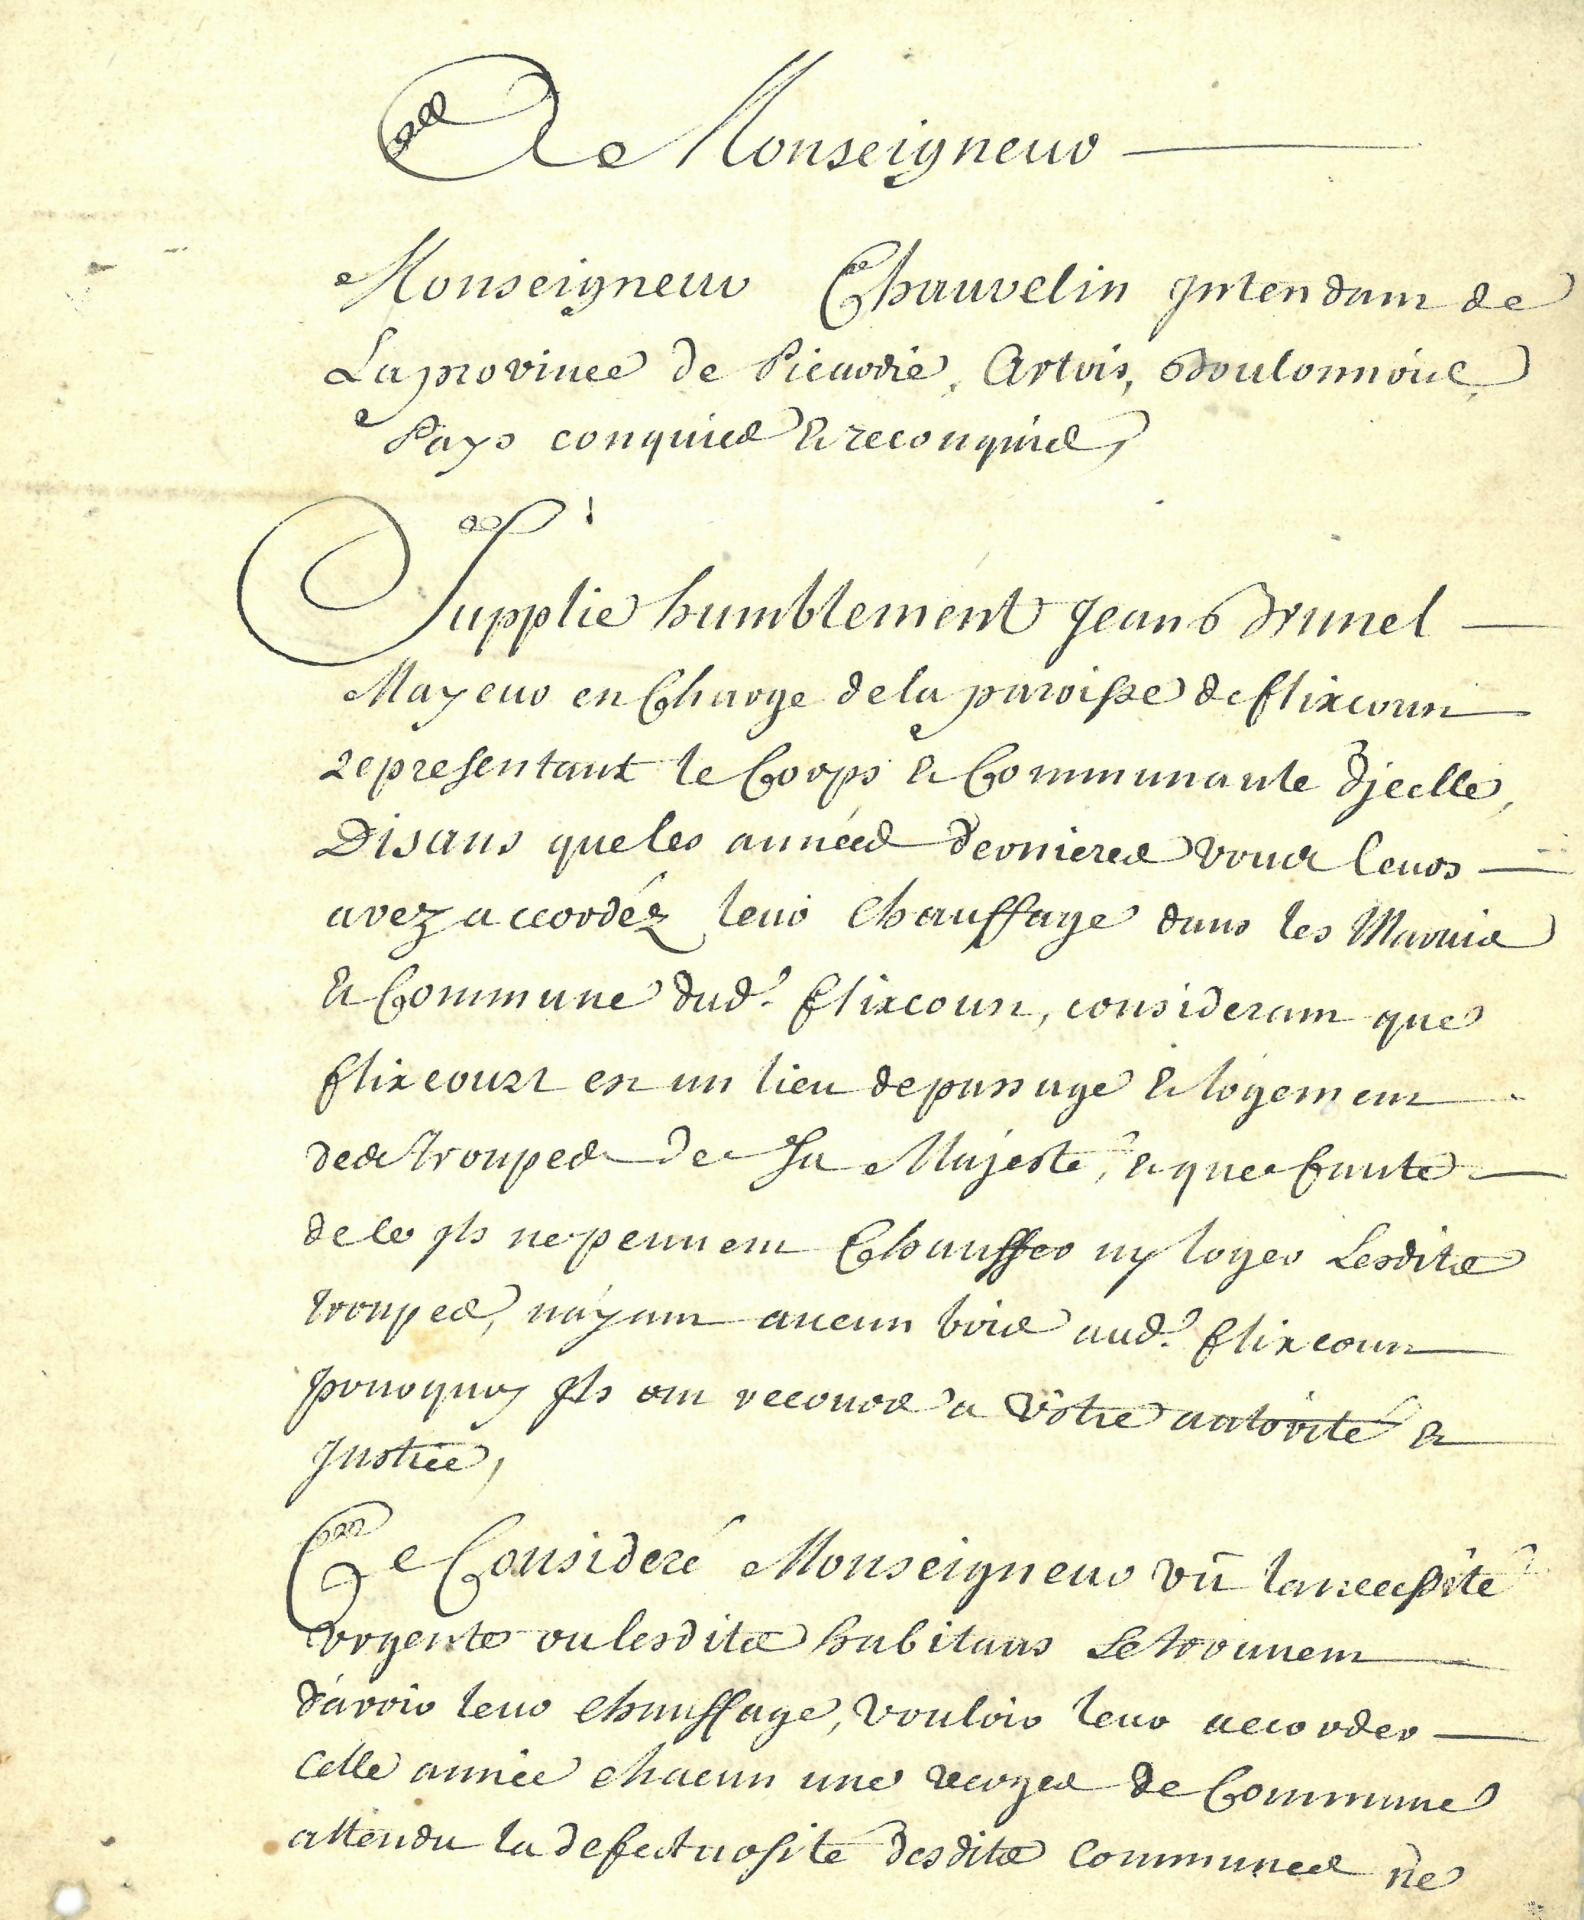 A Monseigneur
Monseigneur Chauvelin Intendant de
La province de Picardie, Artois, Boulonnois,
Pays conquis et reconquis,
Supplie humblement Jean Brunel
Mayeur en Charge de la paroisse de flixcourt
representant le Corps et Communauté d'jcelle,
Disans que les années dernieres vous leurs
avez accordéz leur chauffage dans les Marais
et Commune dud. flixcourt, considerant que
flixcourt est un lieu de passage et logement
des troupes de Sa Majesté, et que faute
de ce Ils ne peuvent Chauffer ny loger Lesdits
troupes, n'ayant aucun bois aud. flixcourt
pourquoy Ils ont recours a Vôtre autorité et
Justice,
Ce Consideré Monseigneur vû la necessité
urgente ou lesdits habitans se trouvent
d'avoir leur chauffage, vouloir leur accorder
cette année chacun une verges de Commune
attendu la defectuosité desdits communes ne